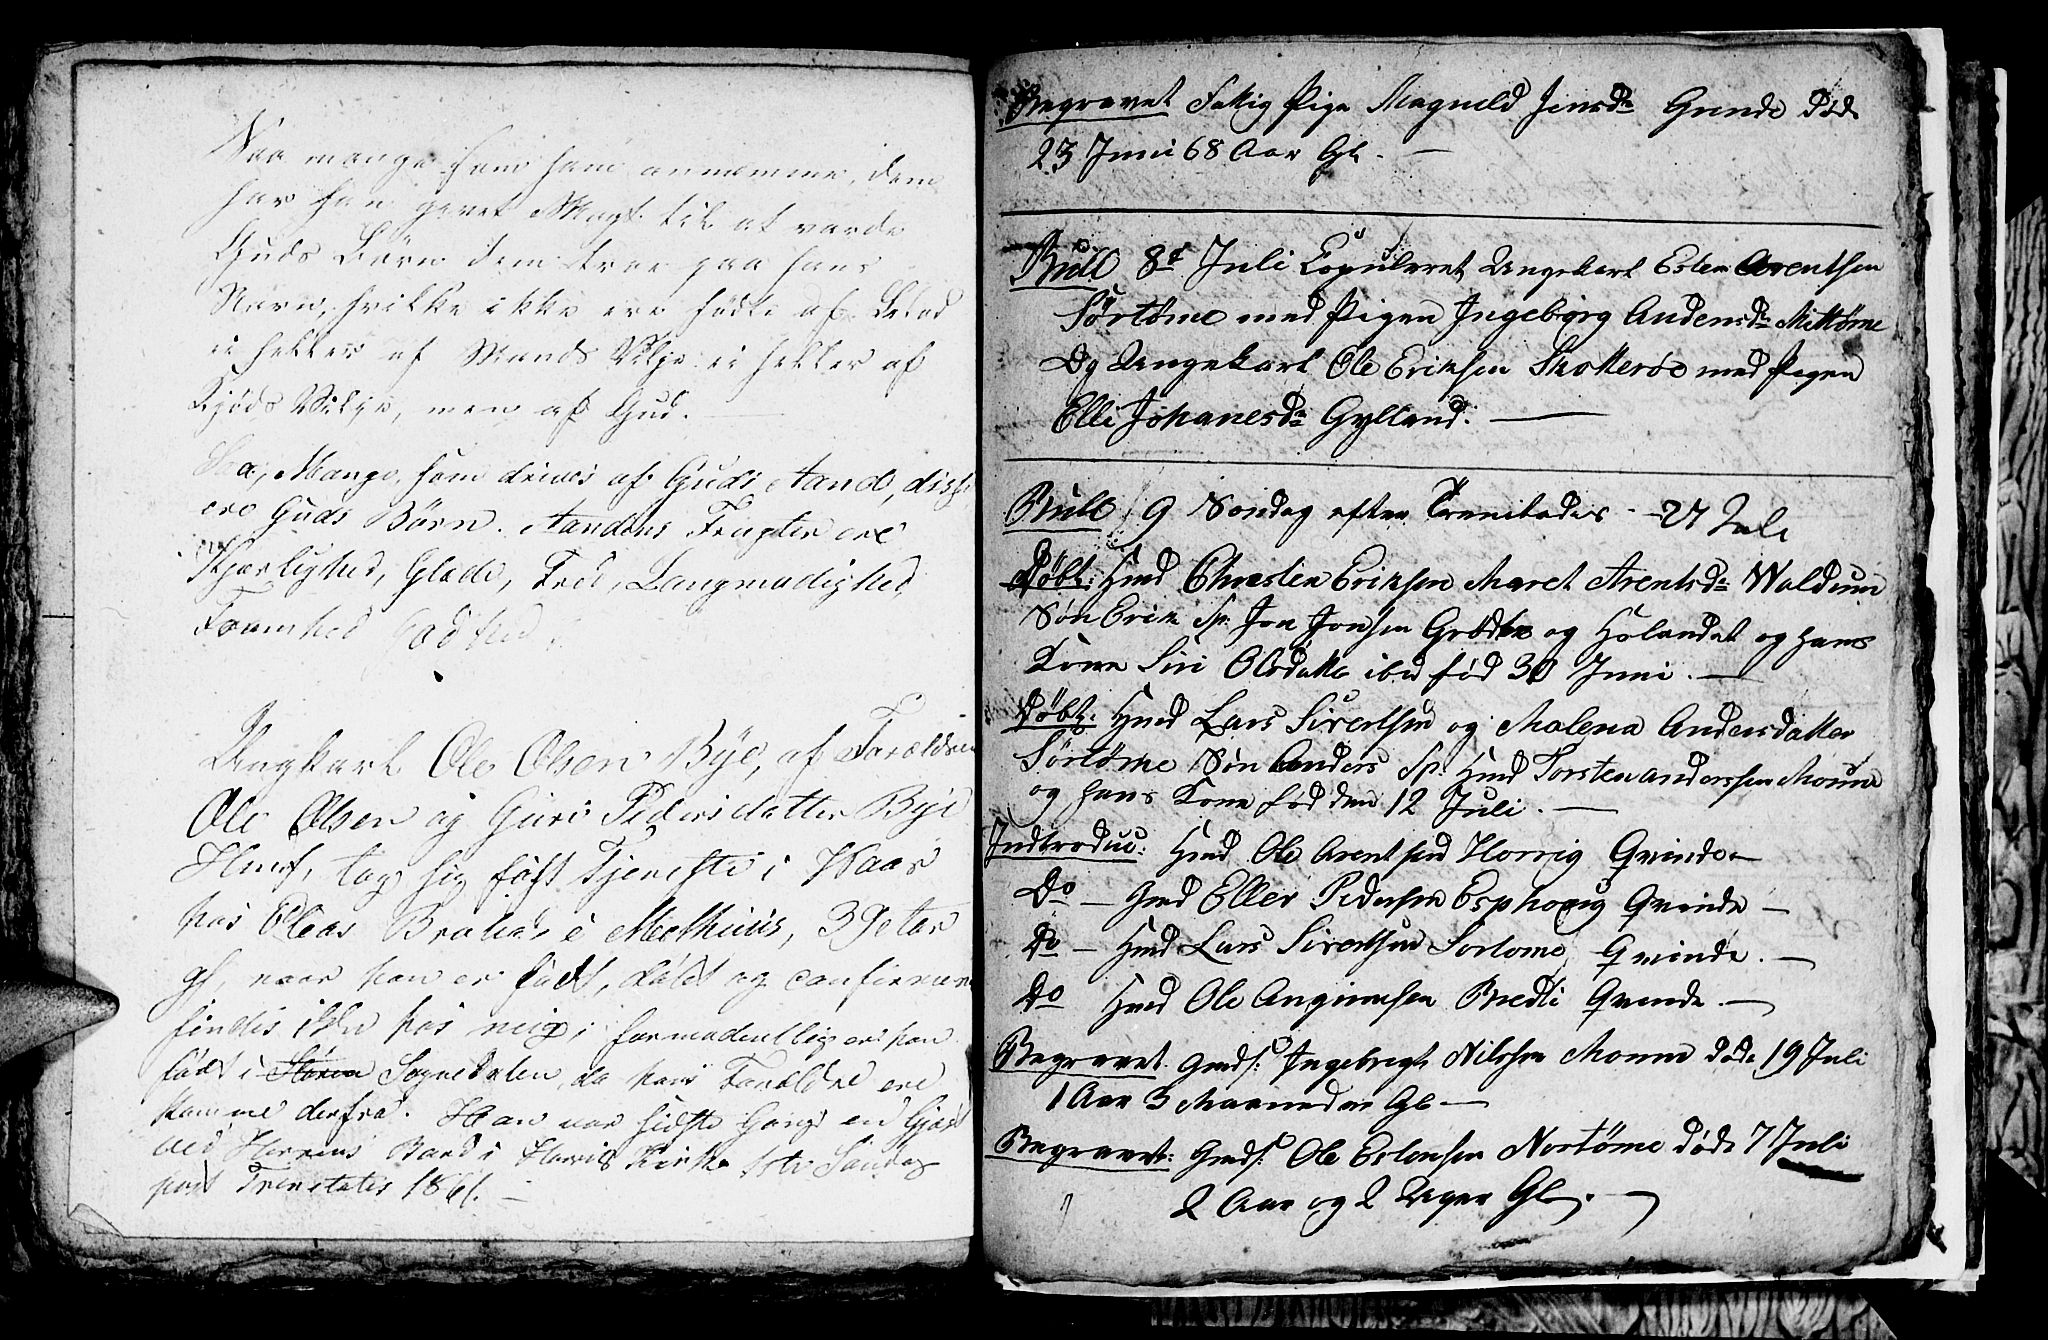 Saa mange som ham annamme, dem
har han givet Magt til at vorde
Guds Børn dem troe paa hans
Navn, hvilke ikke ere fødte af Blod
ei heller af Mands Vilje ei heller af
Kjøds Vilje, men af Gud.
Saa Mange som drives af Guds Aand, disse
ere Guds Børn. Aandens Frugter ere
Kjærlighed, Glæde, Fred, Langmodighed
Fromhed Godhed
Ungkarl Ole Olsen Bye, af Forældre
Ole Olsen og Guri Pedersdatter Bye
tog sig fast Tjeneste i
hos i Melhuus, 39 Aar
gl, naar han er født, døbt og confirmeret
findes ikke hos mig; formodentlig er han
født i Støren Sognedalen, da hans Forældre ere
komne derfra. Han var sidste Gang en Gjæst
ved Herrens Bord i Horrig Kirke 1ste Søndag
post Trinitatis 1861.
Begravet Fattig Pige Magnild Jensdr Grinde Død
23 Juni 68 Aar Gl.
Buill 8d Juli Copuleret Ungekarl Esten Arentsen
Sørtøme med Pigen Ingeborg Andersdr Mittøme
Og Ungekarl Ole Eriksen Skotterøe med Pigen
Elli Johanesdr Gylland.
Buill 9 Søndag efter Trenitades 27 Juli
Døbt: Hmd Christen Eriksen Maret Arentsdr Woldum
Søn Erik Sp. Jon Jonsen Grødte og Holandet og hans
Kone Siri Olsdatte ibd fød 30 Juni.
Døbt. Hmd Lars Sivertsen og Malena Andersdatter
Sörtøme Søn Anders Sp: Hmd Torsten anderssen Moune
og hans Kone fød den 12 Juli.
Indtroduc: Hmd Ole Arentsen Horrig Qvinde
Do — Gmd Eller Pedersen Esphoug Qvinde —
Do — Hmd Lars Sivertsen Sortome, Qvinde.
Do Hmd Ole Anginnsen Bredli Qvinde.
Begravet. Gmds: Ingebregt Nilssen Moune døde 19 Juli
1 Aar 3 Maaneder Gl
Begravet: Gmds: Ole Estensen Nortøme Døde 7 Juli
2 Aar og 2 Uger Gl.